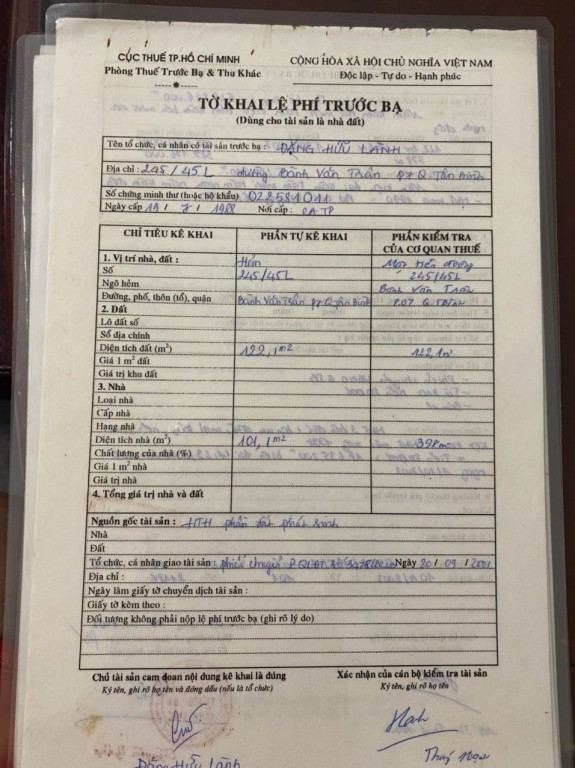 CỤC THUẾ TP.HỒ CHÍ MINH
CỘNG HÒA XÃ HỘI CHỦ NGHĨA VIỆT NAM
Phòng Thuế Trước Bạ & Thu Khác
Độc lập - Tự do - Hạnh phúc
TỜ KHAI LỆ PHÍ TRƯỚC BẠ
(Dùng cho tài sản là nhà đất)
Tên tổ chức, cá nhân có tài sản trước bạ : ĐẶNG HỮU LÀNH
Địa chỉ : 245/45L đường Bành Văn Trân P7 Q. Tân Bình
Số chứng minh thư (hoặc hộ khẩu) 022581011
Ngày cấp 19 / 7 / 1988 Nơi cấp : CA TP
CHỈ TIÊU KÊ KHAI PHẦN TỰ KÊ KHAI PHẦN KIỂM TRA
CỦA CƠ QUAN THUẾ
1. Vị trí nhà, đất : Hẻm Mặt tiền đường
Số 245/45L 245/45L
Ngõ hẻm Bành Văn Trân
Đường, phố, thôn (tổ), quận Bành Văn Trân P7 Q Tân Bình P.07 Q. TBình
2. Đất
Lô đất số
Sổ địa chính
Diện tích đất (m²) 122,1m² 122,1m²
Giá 1 m² đất
Giá trị khu đất
3. Nhà
Loại nhà
Cấp nhà
Hạng nhà
Diện tích nhà (m²) 101,1m² 398m²
Chất lượng của nhà (%)
Giá 1 m² nhà
Giá trị nhà
4. Tổng giá trị nhà và đất
Nguồn gốc tài sản : HTH phần đất phát sinh
Nhà
Đất
Tổ chức, cá nhân giao tài sản : phiếu chuyển Ngày 20 / 09 / 2001
Địa chỉ :
Ngày làm giấy tờ chuyển dịch tài sản :
Giấy tờ kèm theo :
Đối tượng không phải nộp lệ phí trước bạ (ghi rõ lý do)
Chủ tài sản cam đoan nội dung kê khai là đúng
Xác nhận của cán bộ kiểm tra tài sản
Ký tên, ghi rõ họ tên và đóng dấu (nếu là tổ chức)
Ký tên, ghi rõ họ tên
Đặng Hữu Lành